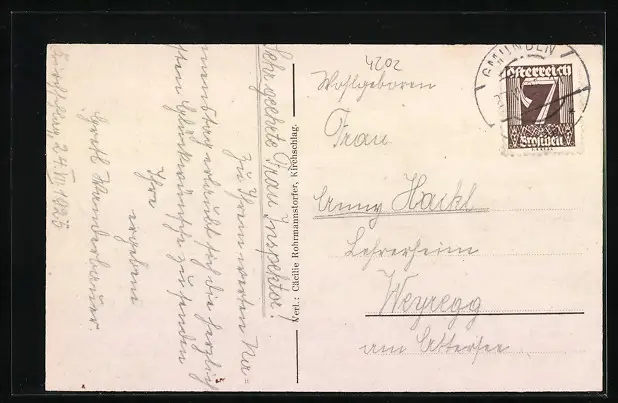 Sehr geehrte Frau Inspektor!
Zu Ihrem werten Na-
menstag erlaubt sich die herzlich-
sten Glückwünsche zu senden
Ihre
ergebene
Gretl Wunderbauer.
Kirchschlag, 24. VII. 1926
Verl.: Cäcilie Rohrmannstorfer, Kirchschlag.
4202
Wohlgeboren
Frau
Anny Hackl
Lehrerheim
Weyregg
am Attersee
GMUNDEN
Österreich
7
Groschen